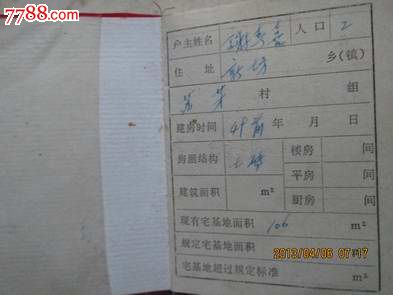 7788.com
户主姓名 谢 人口 2
住 址 新坊 乡(镇)
村 组
建房时间 49前 年 月 日
房屋结构 土墙 楼房 间
平房 间
建筑面积 m² 厨房 间
现有宅基地面积 106 m²
规定宅基地面积 m²
宅基地超过规定标准 m²
2013/04/06 07:17